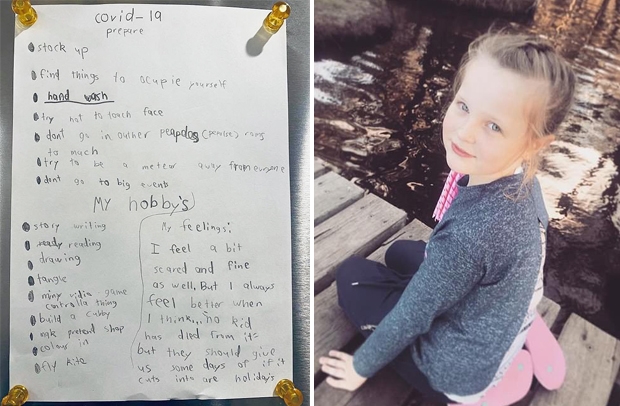 covid-19
prepare
stock up
find things to ocupie yourself
hand wash
try not to touch face
dont go in outher (peroles) roms
to much
try to be a meteor away from everyone
dont go to big events
My hobby's
story writing
reading
drawing
tangle
miny vidio game
controlla thing
build a cubby
mak pretend shop
colour in
fly kite
My feelings:
I feel a bit
scared and fine
as well. But I always
feel better when
I think... no kid
has died from it
but they should give
us some days of if it
cuts into are holiday's